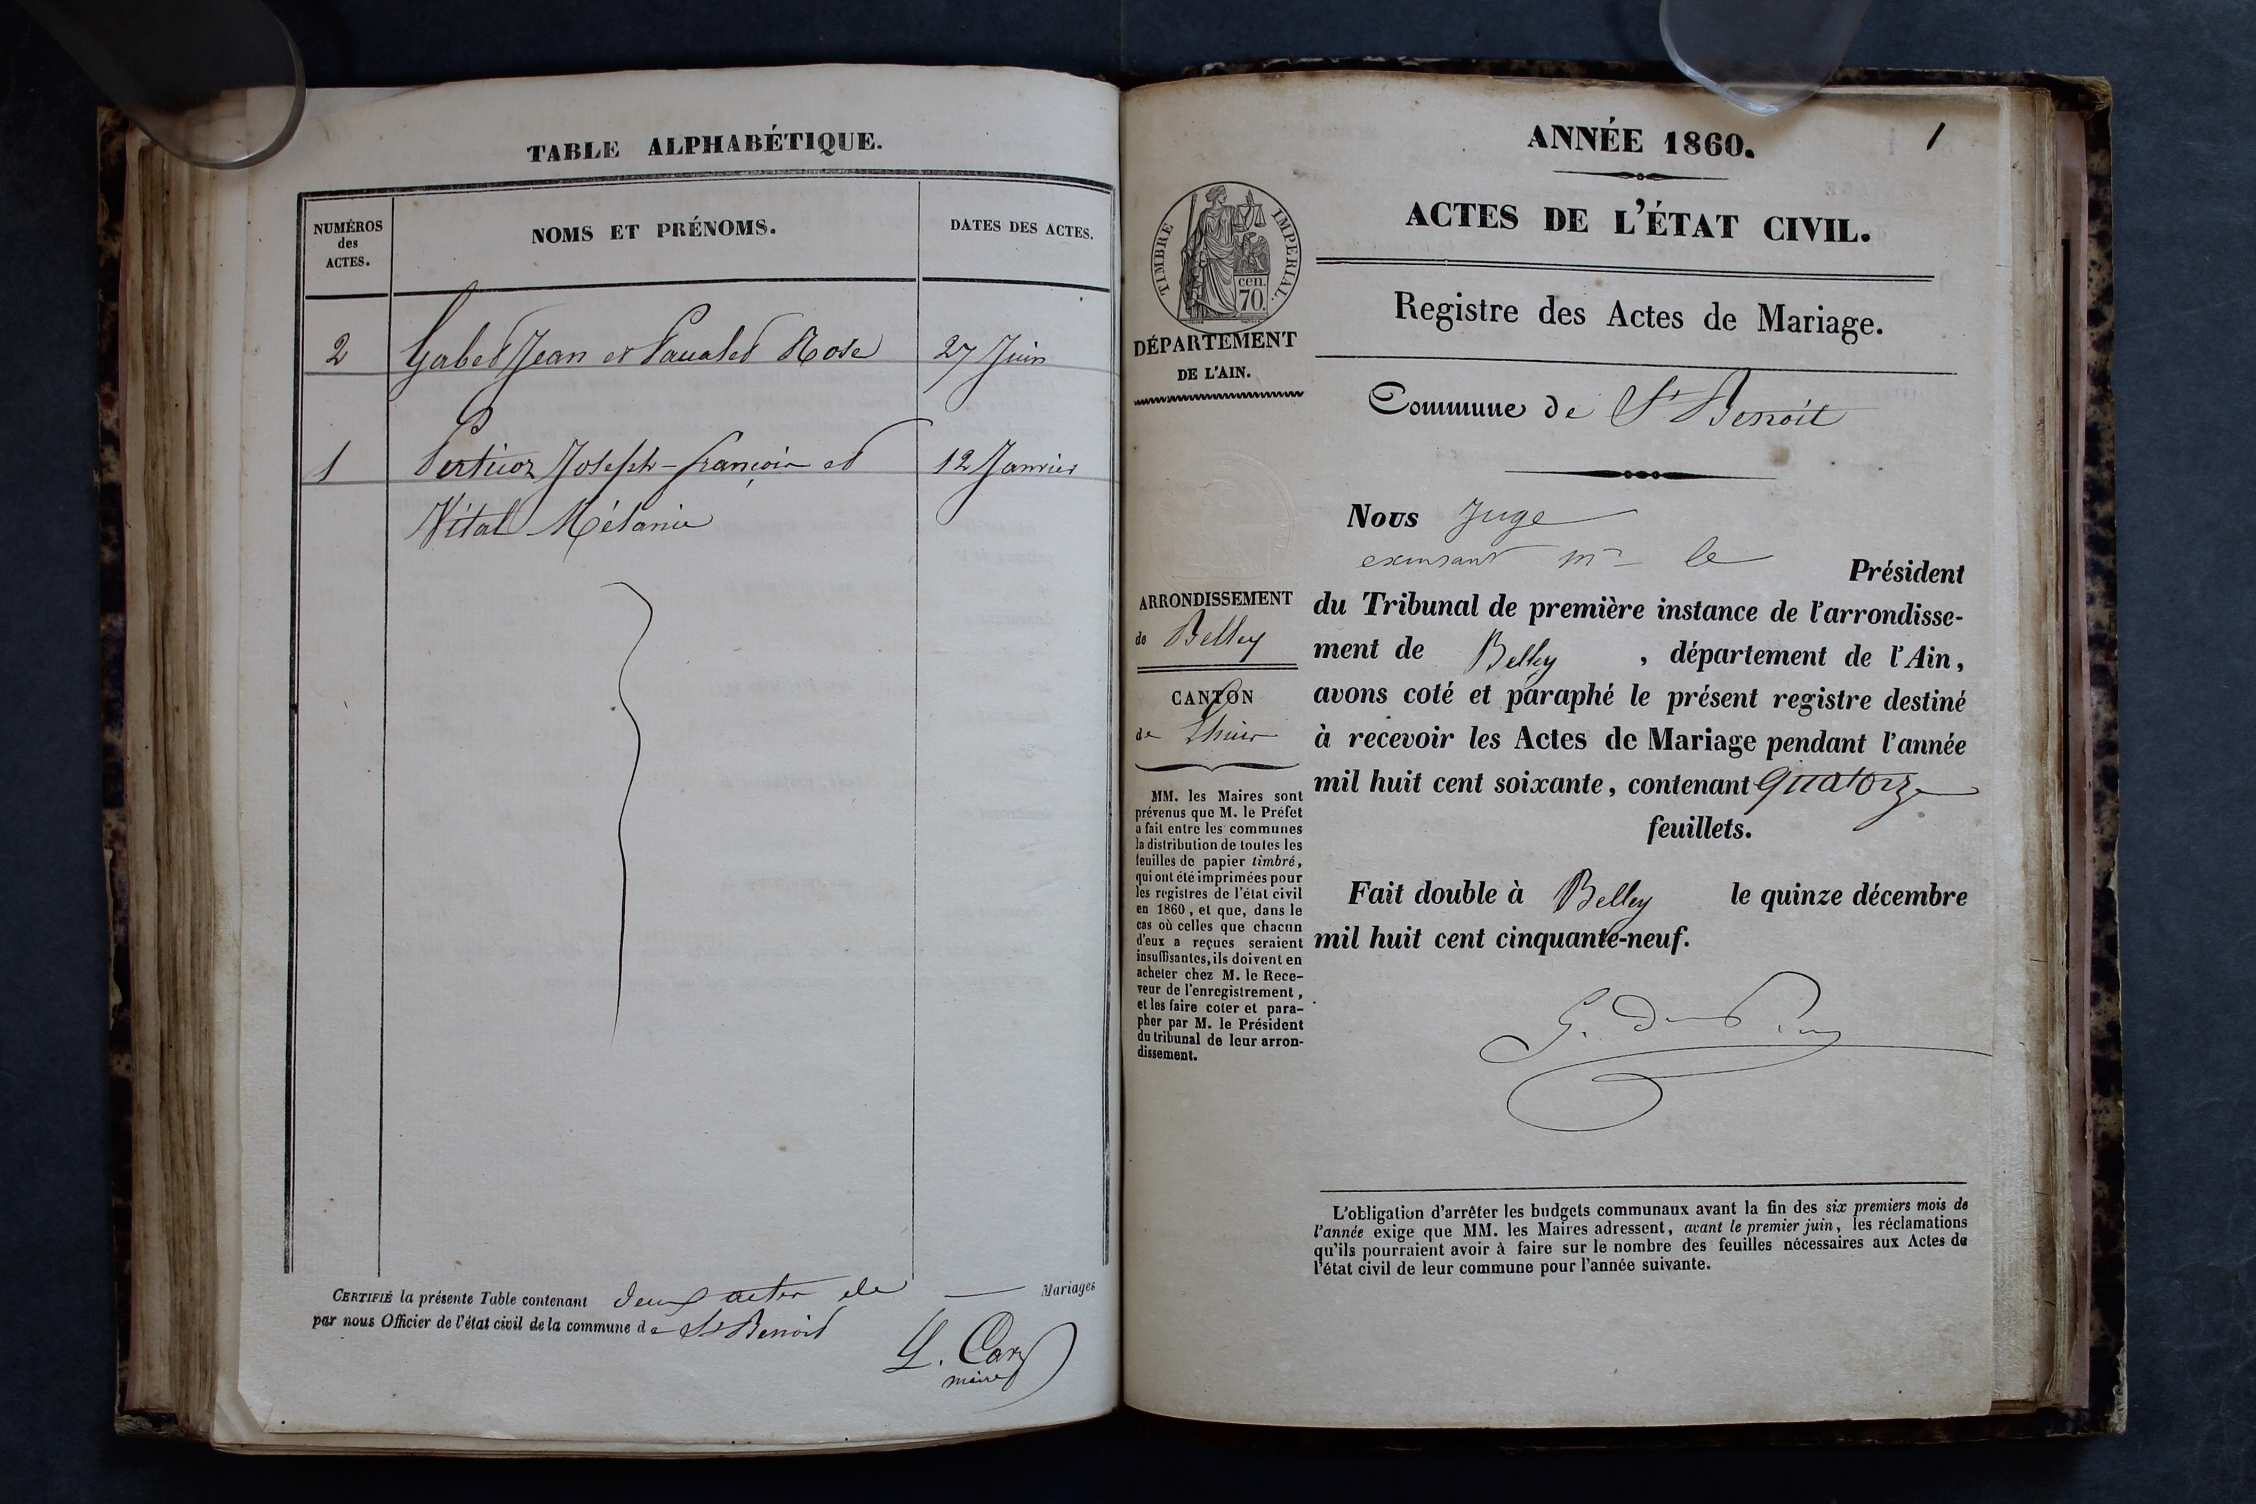 TABLE ALPHABÉTIQUE.
NUMÉROS
des
ACTES.
NOMS ET PRÉNOMS.
DATES DES ACTES.
2 Gabet Jean et Rose 27 Juin
1 Joseph-françois et 12 Janvier
Vital Mélanie
CERTIFIÉ la présente Table contenant deux actes de Mariages
par nous Officier de l'état civil de la commune de St Benoit
maire
1
ANNÉE 1860.
ACTES DE L'ÉTAT CIVIL.
Registre des Actes de Mariage.
TIMBRE IMPERIAL.
cen.
70.
DÉPARTEMENT
DE L'AIN.
ARRONDISSEMENT
de Belley
CANTON
de Lhuis
MM. les Maires sont
prévenus que M. le Préfet
a fait entre les communes
la distribution de toutes les
feuilles de papier timbré,
qui ont été imprimées pour
les registres de l'état civil
en 1860, et que, dans le
cas où celles que chacun
d'eux a reçues seraient
insuffisantes, ils doivent en
acheter chez M. le Rece-
veur de l'enregistrement,
et les faire coter et para-
pher par M. le Président
du tribunal de leur arron-
dissement.
Commune de St Benoit
Nous Juge
mr le Président
du Tribunal de première instance de l'arrondisse-
ment de Belley, département de l'Ain,
avons coté et paraphé le présent registre destiné
à recevoir les Actes de Mariage pendant l'année
mil huit cent soixante, contenant quatorze
feuillets.
Fait double à Belley le quinze décembre
mil huit cent cinquante-neuf.
L'obligation d'arrêter les budgets communaux avant la fin des six premiers mois de
l'année exige que MM. les Maires adressent, avant le premier juin, les réclamations
qu'ils pourraient avoir à faire sur le nombre des feuilles nécessaires aux Actes de
l'état civil de leur commune pour l'année suivante.